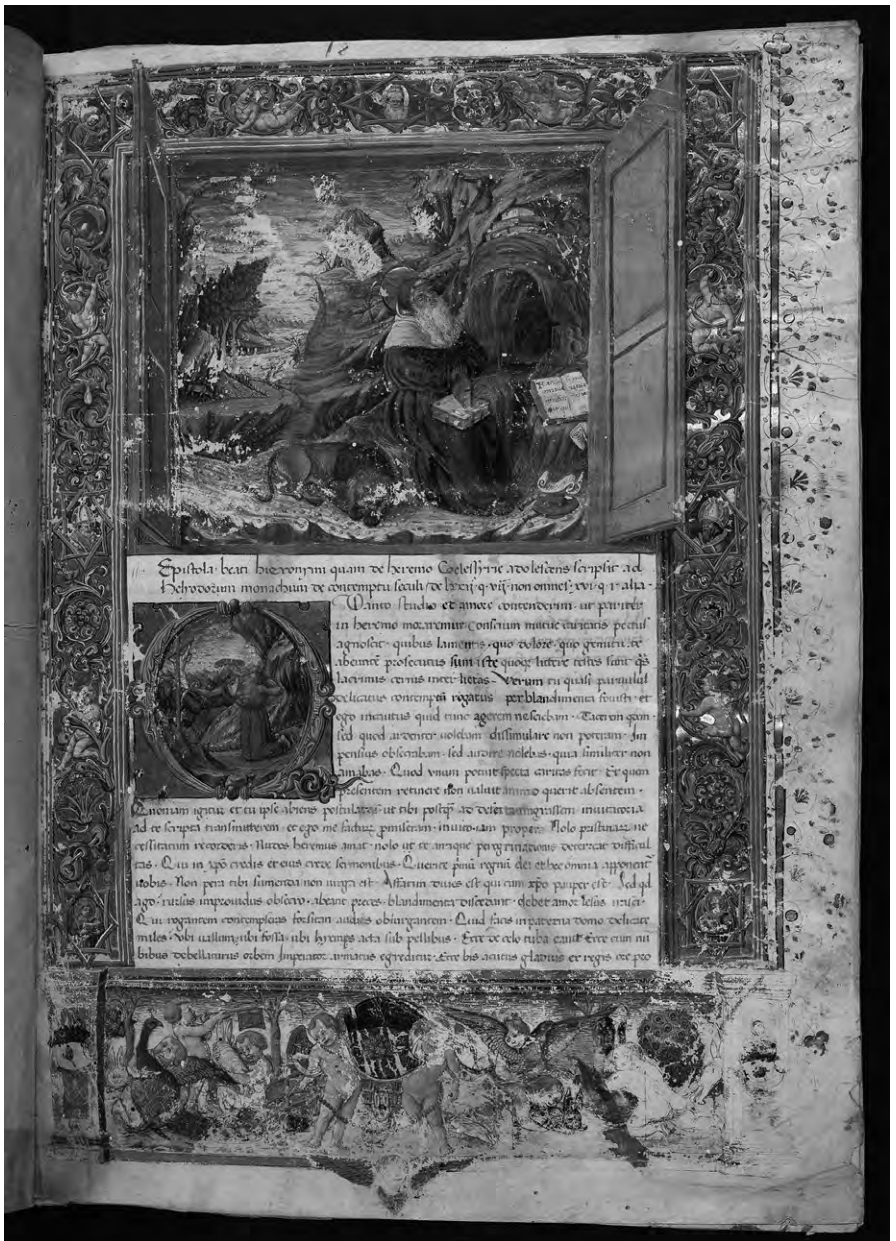 Epistola beati hieronimi quam de heremo adolescens scripsit ad
Heliodorum monachum de contemptu seculi
Quanto studio et amore contenderim · ut pariter
in heremo moraremur conscium mutue caritatis pectus
agnoscit · quibus lamentis · quo dolore · quo gemitu te
abeunte prosecutus sum iste quoque littere testes sunt
lacrimis cernis interlitas · Verum tu quasi parvulus
delicatus contemptum rogatus per blandimenta fovisti · et
ego incautus quid tunc agerem nesciebam · Tacerem
sed quod ardenter volebam dissimulare non poteram · Im
pensius obsecrabam · sed audire nolebas · quia similiter non
amabas · Quod unum potuit caritas fecit · Et quem
presentem retinere non valuit querit absentem ·
Quoniam igitur et tu ipse abiens postulatis ut tibi
ad te scripta transmitterem · et ego me
cessitatum recorderis · Nudos heremus amat · nolo ut te antique peregrinationis deterreat difficul
tas · Qui in xpo credis et eius crede sermonibus · Querite regnum dei et hec omnia
vobis · Non pera tibi sumenda non virga est · Affatim dives est qui cum xpo pauper est · Sed
ago · rursus improvidus obsecro · abeant preces · blandimenta discedant · debet amor
Qui rogantem contempseras forsitan audies obiurgantem · Quid facis in paterna domo delicate
miles · ubi vallum, ubi fossa · ubi hyemps acta sub pellibus · Ecce de celo tuba canit Ecce cum nu
bibus debellaturus orbem Imperator armatus egreditur · Ecce bis acutus gladius ex regis ore pro